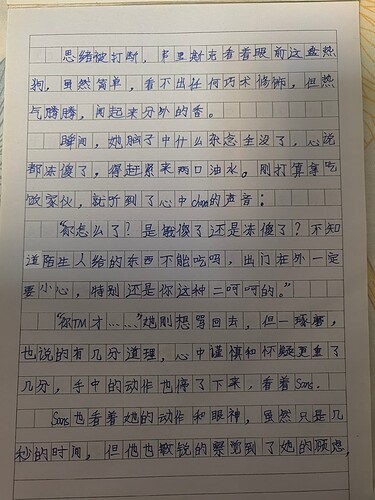 思绪被打断，卢里斯克看着眼前这盘热
狗，虽然简单，看不出任何巧术修饰，但热
气腾腾，闻起来分外的香。
瞬间，她脑子中什么杂念全没了，心说
都冻傻了，得赶紧来两口油水。刚打算享吃
做家伙，就听到了心中chara的声音：
“你怎么了？是饿傻了还是冻傻了？不知
道陌生人给的东西不能吃吗，出门在外一定
要小心，特别还是你这种二呵呵的。”
“你TM才……”她刚想骂回去，但一琢磨，
也说的有几分道理，心中谨慎和怀疑更重了
几分，手中的动作也停了下来，看着Sans.
Sans也看着她的动作和眼神，虽然只是几
秒的时间，但他也敏锐的察觉到了她的顾虑，